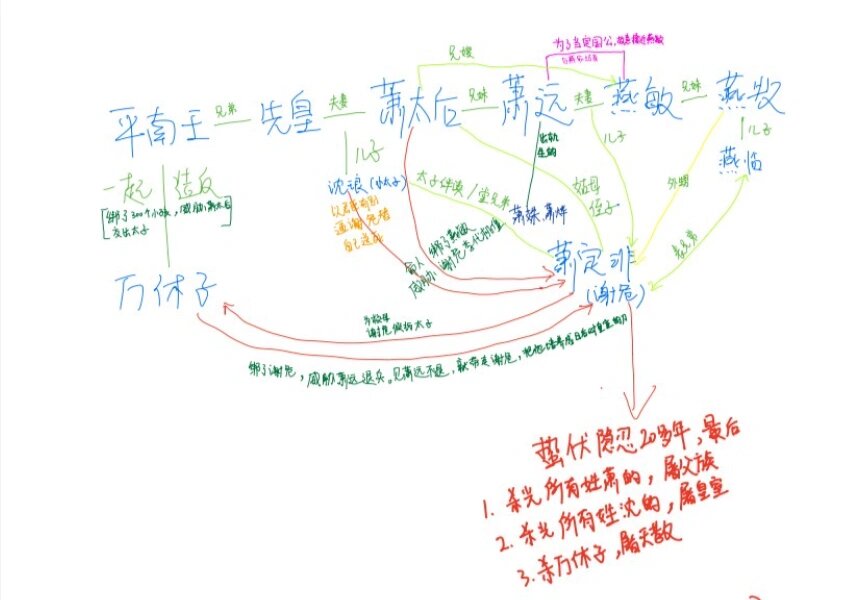 为了当定国公,故意接近燕敏
兄嫂
平南王
兄弟
先皇
夫妻
萧太后
兄妹
萧远
夫妻
燕敏
兄妹
燕牧
儿子
出轨
生的
儿子
儿子
燕临
沈琅(小太子)
太子伴读/堂兄弟
姑母
侄子
外甥
一起
造反
绑了300个小孩,威胁萧太后
交出太子
以此
逼谢危替
自己送死
萧姝,萧烨
命人绑了燕敏
威胁谢危李代桃僵
表兄弟
萧定非
(谢危)
万休子
为救母
谢危假扮太子
绑了谢危,威胁萧远退兵。见萧远不退,就带走谢危,把他培养成日后对皇室的刀
蛰伏隐忍20多年,最后
1. 杀光所有姓萧的,屠父族
2. 杀光所有姓沈的,屠皇室
3. 杀万休子,屠天教